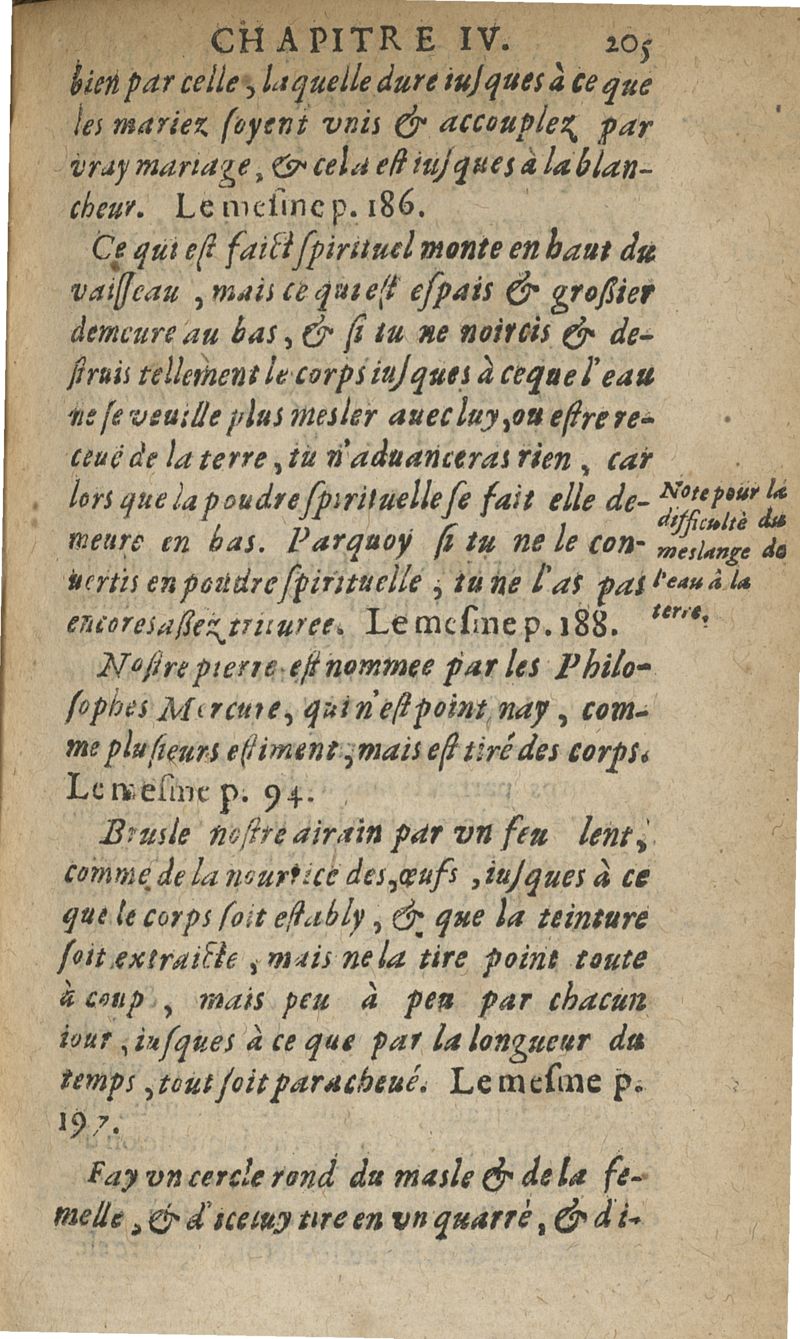 CHAPITRE IV. 205
bien par celle, laquelle dure iuſques à ce que
les mariez ſoyent vnis & accouplez par
vray mariage, & cela eſt iuſques à la blan-
cheur. Le meſme p. 186.
Ce qui eſt faict ſpirituel monte en haut du
vaiſſeau, mais ce qui eſt eſpais & groſsier
demeure au bas, & ſi tu ne noircis & de-
ſtruis tellement le corps iuſques à ce que l'eau
ne ſe veuille plus mesler auec luy, ou eſtre re-
ceuë de la terre, tu n'aduanceras rien, car
lors que la poudre ſpirituelle ſe fait elle de-
meure en bas. Parquoy ſi tu ne le con-
uertis en poudre ſpirituelle, tu ne l'as pas
encores aſſez trituree. Le meſme p. 188.
Note pour la
difficultè du
meslange de
l'eau à la
terre.
Noſtre pierre eſt nommee par les Philo-
ſophes Mercure, qui n'eſt point nay, com-
me pluſieurs eſtiment, mais eſt tiré des corps.
Le meſme p. 94.
Brusle noſtre airain par vn feu lent,
comme de la nourrice des œufs, iuſques à ce
que le corps ſoit eſtably, & que la teinture
ſoit extraicte, mais ne la tire point toute
à coup, mais peu à peu par chacun
iour, iuſques à ce que par la longueur du
temps, tout ſoit paracheué. Le meſme p.
197.
Fay vn cercle rond du masle & de la fe-
melle, & d'iceluy tire en vn quarrè, & d'i-